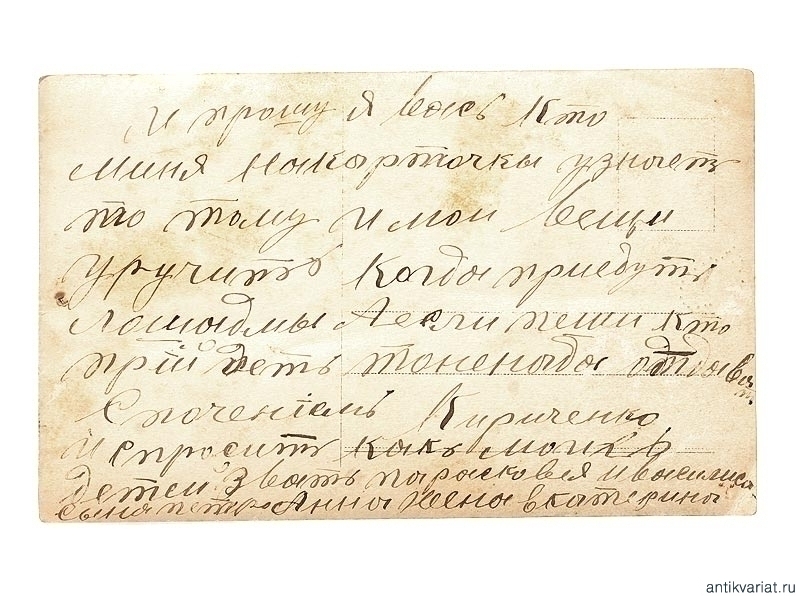 И прошу я вась кто
миня накарточкы узнаеть
то тому и мои вещи
уручить когда приедуть
лошадмы Аесли пеши кто
прій деть тоненада отдават
Спочениемь Кириченко
И спросить какь моихь
детей звать парасковея ивасилиса
сына петро Анна жена екатерина
antikvariat.ru